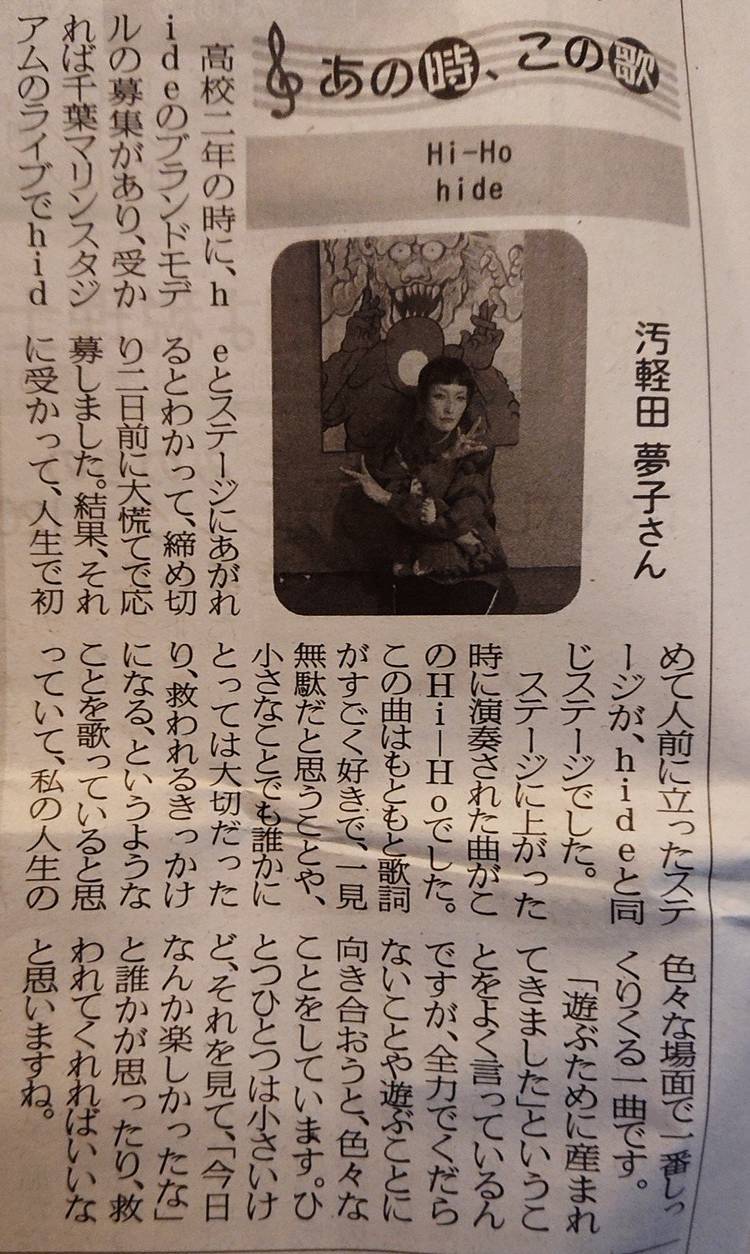 あの時、この歌
Hi-Ho
hide
汚軽田 夢子さん
高校二年の時に、h
ideのブランドモデ
ルの募集があり、受か
れば千葉マリンスタジ
アムのライブでhid
eとステージにあがれ
るとわかって、締め切
り二日前に大慌てで応
募しました。結果、それ
に受かって、人生で初
めて人前に立ったステ
ージが、hideと同
じステージでした。
ステージに上がった
時に演奏された曲がこ
のHi―Hoでした。
この曲はもともと歌詞
がすごく好きで、一見
無駄だと思うことや、
小さなことでも誰かに
とっては大切だった
り、救われるきっかけ
になる、というような
ことを歌っていると思
っていて、私の人生の
色々な場面で一番しっ
くりくる一曲です。
「遊ぶために産まれ
てきました」というこ
とをよく言っているん
ですが、全力でくだら
ないことや遊ぶことに
向き合おうと、色々な
ことをしています。ひ
とつひとつは小さいけ
ど、それを見て、「今日
なんか楽しかったな」
と誰かが思ったり、救
われてくれればいいな
と思いますね。